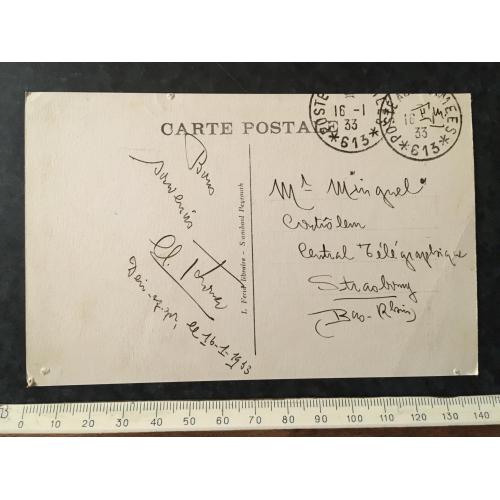 CARTE POSTALE
POSTE AUX ARMÉES
16 -1
33
*613*
POSTE AUX ARMÉES
16
33
*613*
Bons
souvenirs
Deir-ez-zor,
le 16-1-1933
L. Férid, libraire - Sandouk Beyrouth
Mr Minguel
Contrôleur
Central Télégraphique
Strasbourg
(Bas-Rhin)
0 10 20 30 40 50 60 70 80 90 100 110 120 130 140